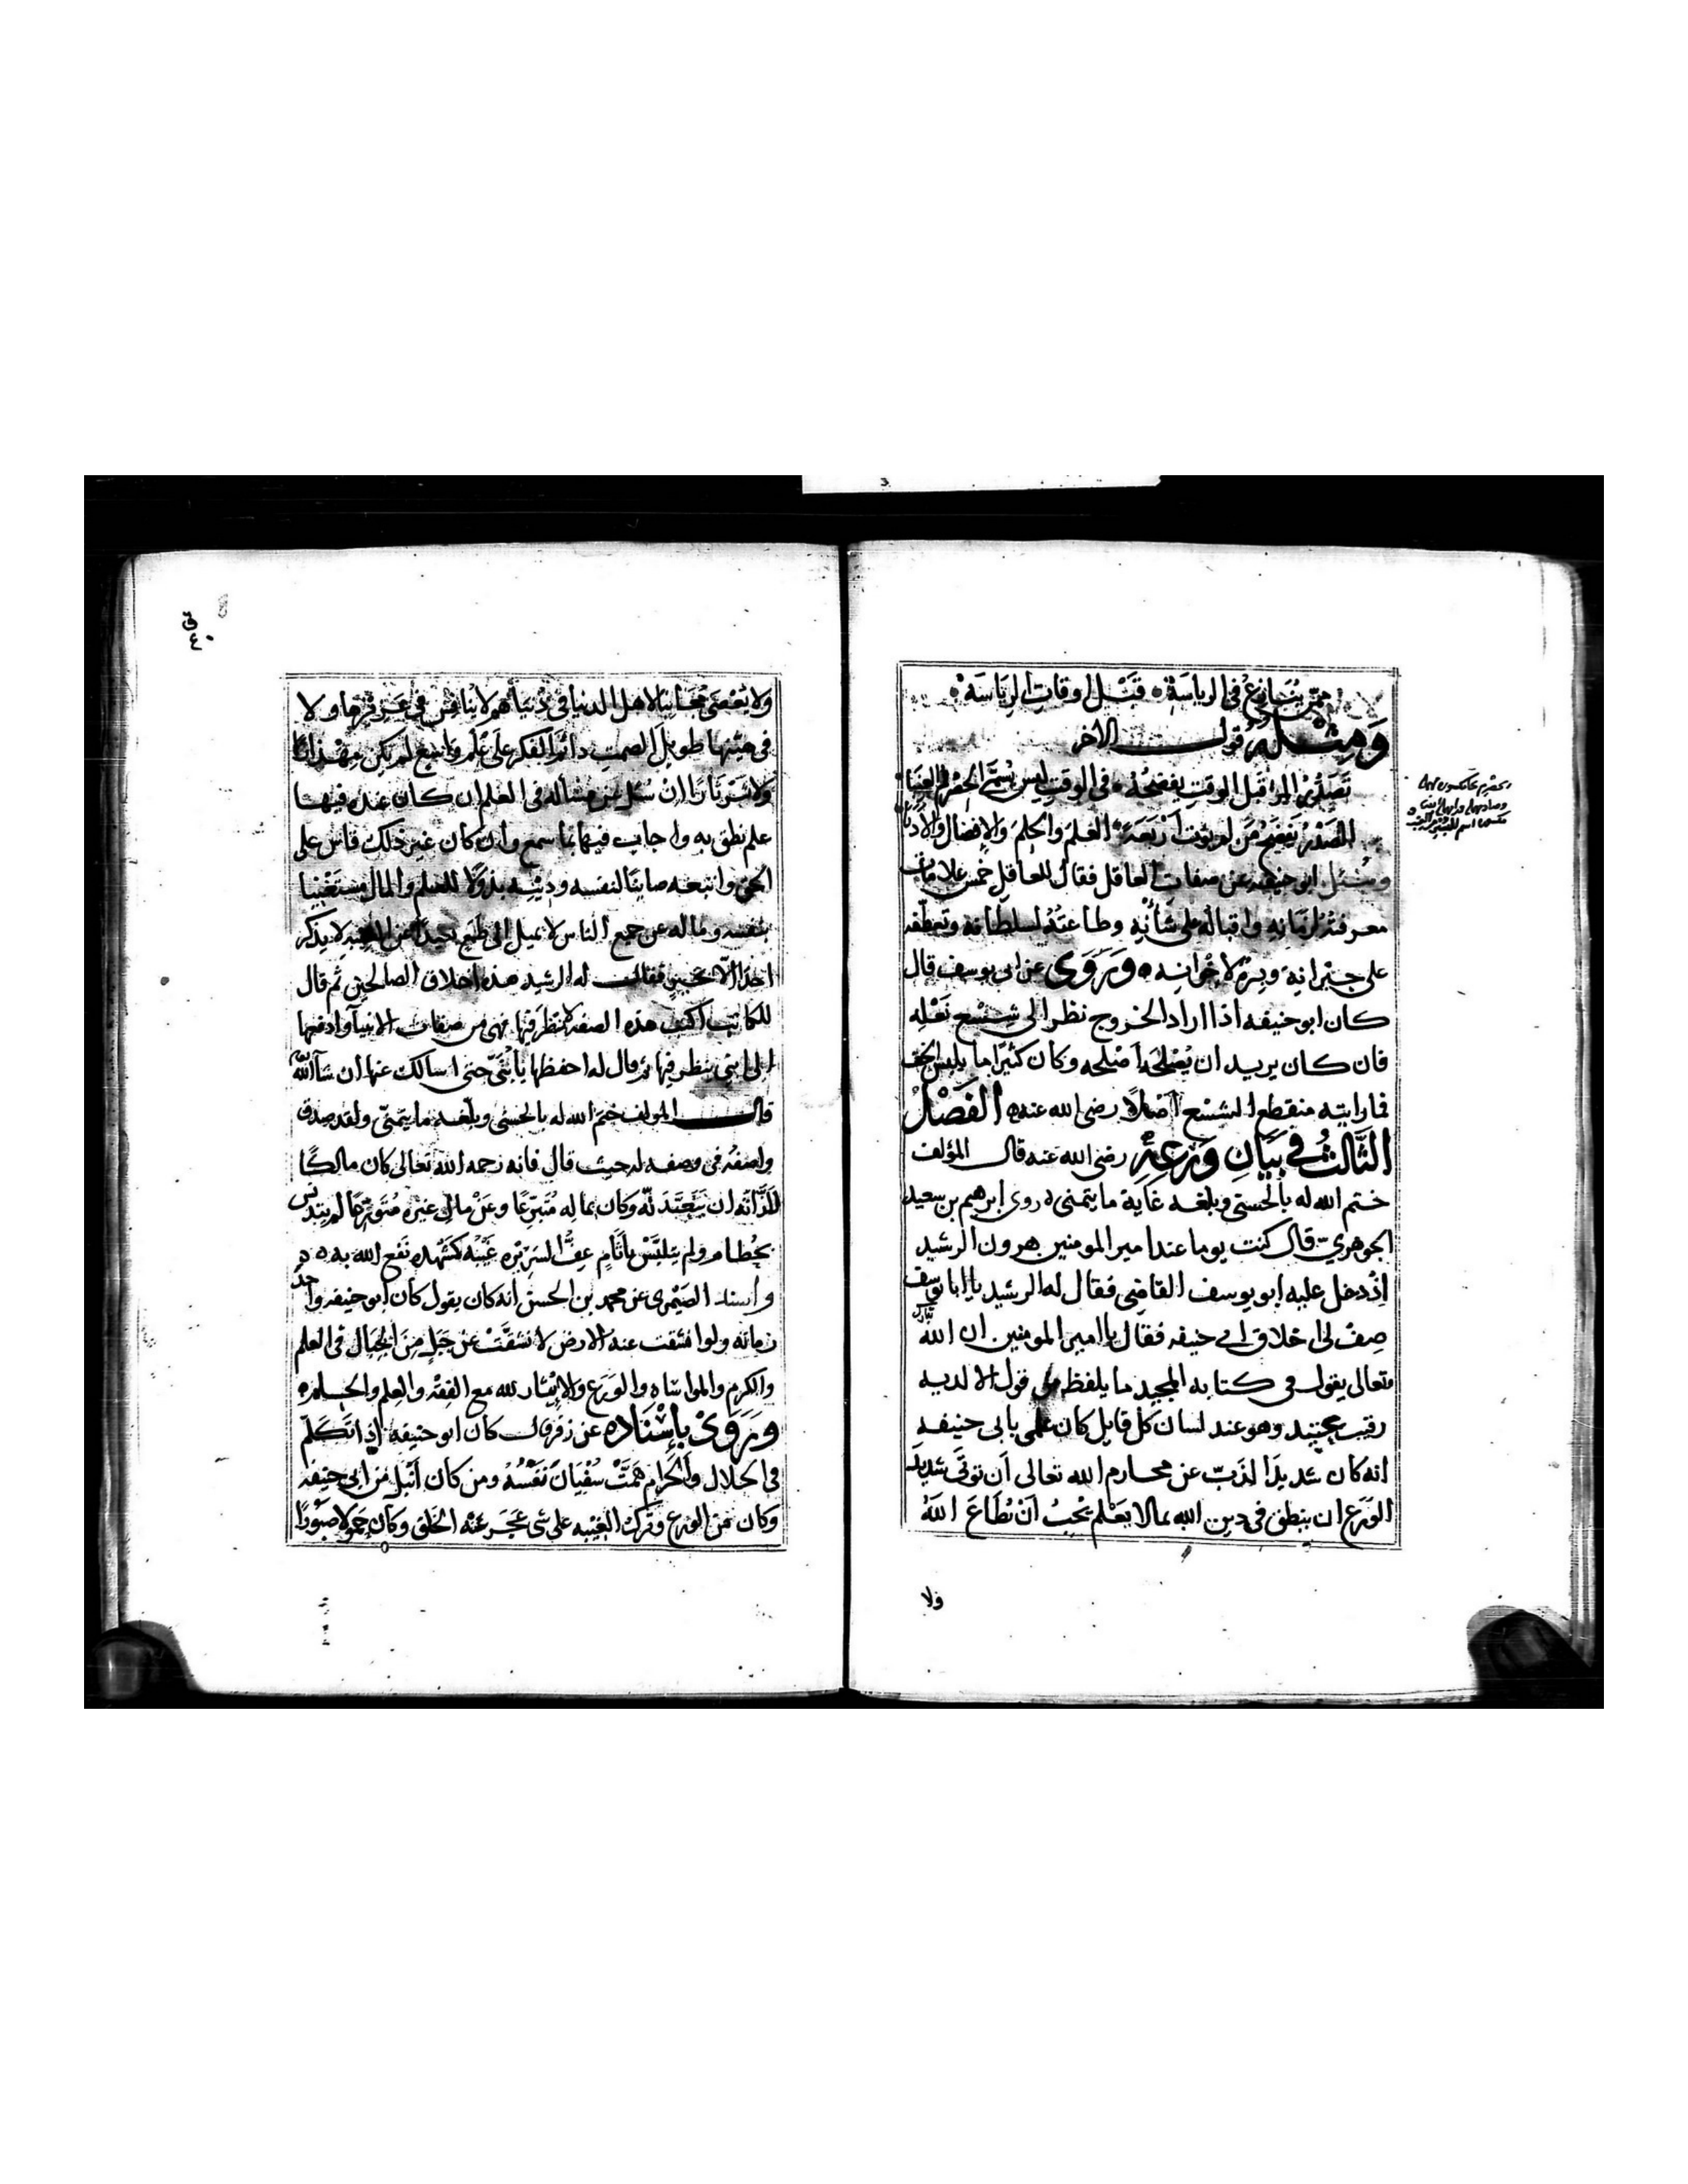 ممن ينازع في الرياسة قبل اوقات الرياسة
وَمِثْلُهُ قول الاخر
تَصَدُّرُ المرء قبل الوقت يفضحُهُ في الوقت ليس
الصَّدْرُ يَفضَحُ مَن لم يؤت أَرْبَعَةً العِلمَ والحِلمَ والإفضال والأدبا
وسُئل ابو حنيفه عن صفات العاقل فقال للعاقل خمس علامات
معرفتُه لزمانه واقباله على شأنِهِ وطاعتُهُ لسلطانه وتعطفه
على جيرانه وبِرّهُ لاِخوانه وَرَوَى عن ابى يوسف قال
كان ابو حنيفه اذا اراد الخروج نظر الى شِسْع نَعْلِه
فان كان يريد ان يُصْلحَه اَصْلحه وكان كثيرًا ما يلبس الخف
فما رايته منقطع الشِسْع اَصْلاً رضى الله عنه الفَصْلُ
الثَّالثُ في بَيَانِ وَرَعِهِ رضى الله عنه قال المؤلف
ختم الله له بالحسنى وبلغه غاية ما يتمنى روى ابرهيم بن سعيد
الجوهري قال كنت يوما عند امير المومنين هرون الرشيد
اِذ دخل عليه ابو يوسف القاضى فقال له الرشيد يا ابا يوسف
صِفْ لى اخلاق ابى حنيفه فقال يا امير المومنين ان الله تبارك
وتعالى يقول فى كتابه المجيد ما يلفظ من قول الا لديه
رقيب عتيد وهو عند لسان كل قايل كان علمى بابى حنيفه
انه كان شديدَ الذَبّ عن محارم الله تعالى اَن تؤتَى شديدَ
الوَرَع ان ينطق فى دين الله بما لا يعْلم يُحِبُّ اَنْ يُطَاعَ اللهُ
ولا
٤٠
ولا يُعْصَى مُجَانِبًا لاهل الدنيا فى دُنياهم لا يُنافِسُ فى عِزّ ولا
طويل الصمتِ دائم الفكر على عِلم واسع لم يكن مِهْذَارًا
ولا ثَرْثَارًا اِنْ سُئل عن مسألة فى العلم ان كان عنده فيها
علم نطق به واجاب فيها بما سمع وان كان غير ذلك قاس على
الحق واتبعه صاينًا لنفسه ودِينِه بذولاً للعلم والمال مستَغْنِيا
بنفسه وماله عن جميع الناس لا يميل الى طَمَع بعيدًا عن الغيبه لا يذكر
احدًا اِلاّ بخير فقال له الرشيد هذه اخلاق الصالحين ثم قال
للكاتب اكتب هذه الصفه فهى من صفات الانبيآ وادفعها
الى ابنى ينظر فيها ثم قال له احفظها يا بُنَىَّ حتى اسالك عنها ان شآ الله
قال المولف ختم الله له بالحسنى وبلغه ما يتمنّى ولقد صدق
واصفُه فى وصفه له حيث قال فانه رحمه الله تعالى كان مالكًا
وكان بمالِه مُتَبَرِّعًا وعَنْ مال غيره مُتَوَرِّعًا لم يتدنس
بحُطام ولم يتلبّسْ باَثَامٍ عفَّ السرِيْره غَيْبُه كشَهْدِه نفع الله به
واسند الصَيْمرى عن محمد بن الحسن انه كان يقول كان ابو حنيفه واحد
زمانه ولو انشقت عنه الارض لانشقَّتْ عن جَبَلٍ مِنَ الجِبَال فى العلم
والكرم والمواساه والوَرَع والاِيْثار لله مع الفِقه والعِلم والحلم
وَرَوَىْ باِسْنَادِه عن زفر قال كان ابو حنيفه اِذا تَكلَّم
فى الحلال والحَرَام هَمَّتْ سُفْيانَ نَفْسُهُ ومن كان اَنْبَل من ابى حنيفه
وكان مِن الورع وتَرْكِ الغِيْبه على شى عَجَزَ عنه الخَلق وكان حَمولا صَبورًا